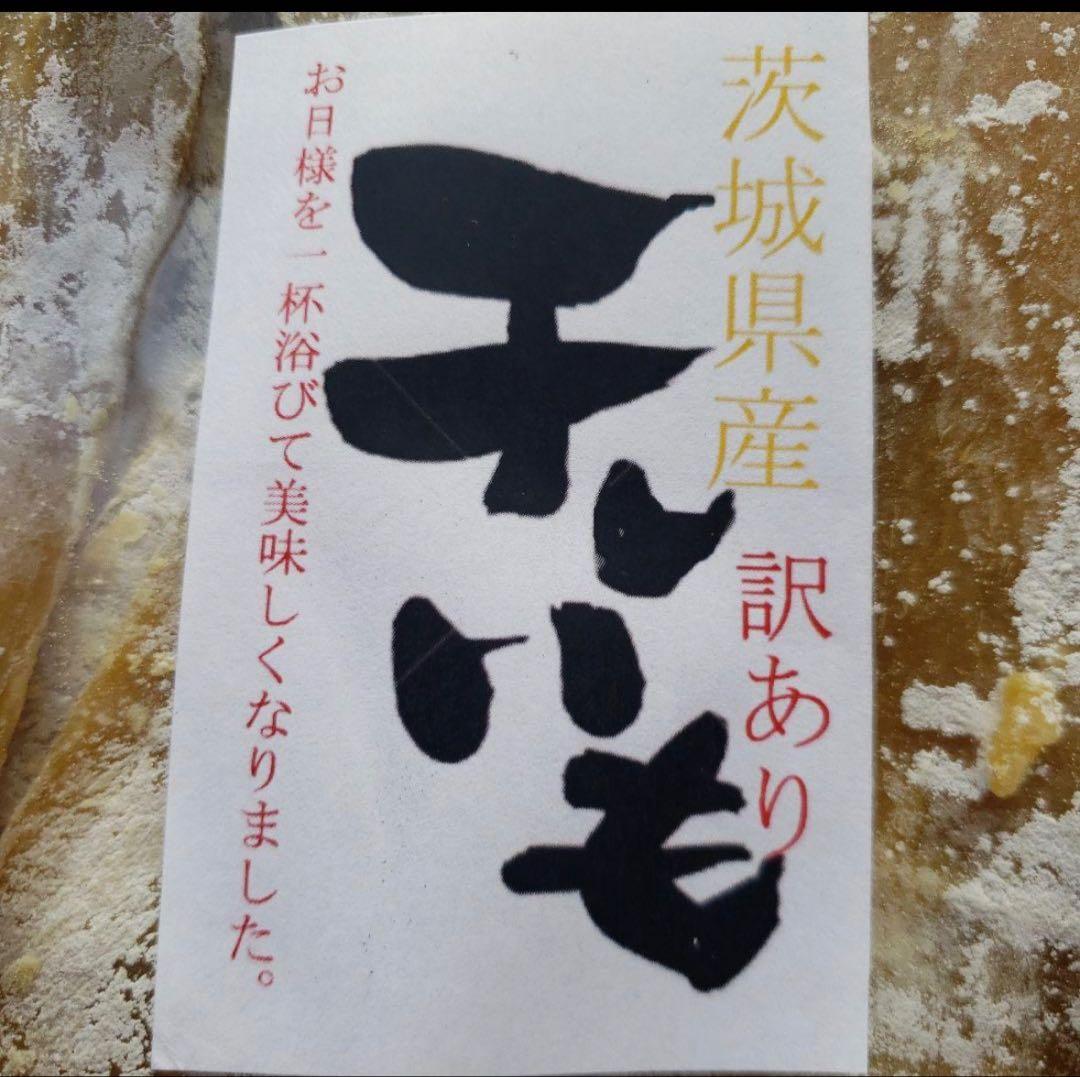 茨城県産
訳あり
干しいも
お日様を一杯浴びて美味しくなりました。